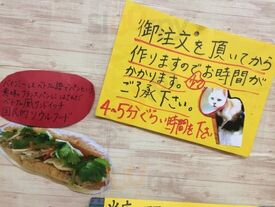 御注文を頂いてから
作りますのでお時間が
かかります。
ご了承下さい。
4〜5分ぐらい時間を下さい
バインミーはベトナム語でパンという
意味。フランスパンにはさんだ
ベトナム風サンドイッチ
国民的ソウルフード